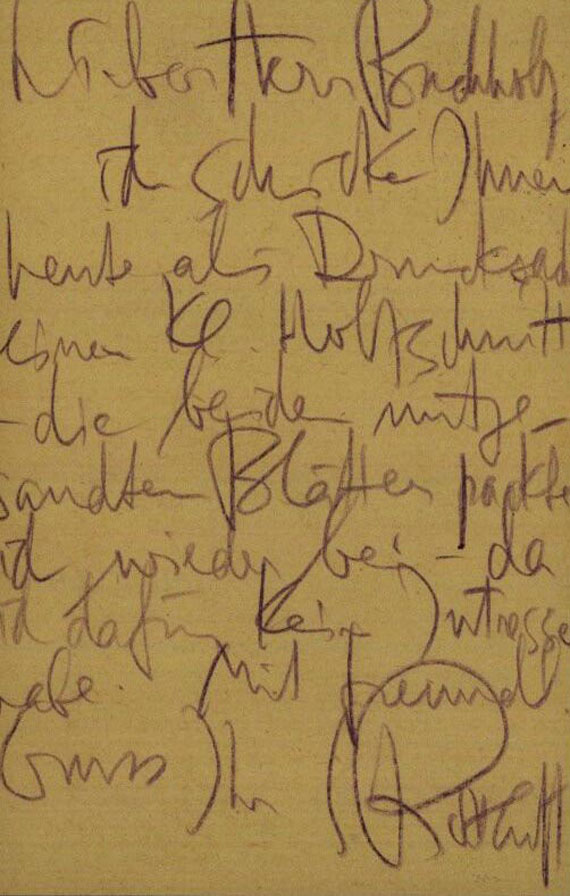 Lieber Herr Buchholz
ich schicke Ihnen
heute als Drucksach
einen kl. Holzschnitt
– die beiden mitge-
sandten Blätter packte
ich wieder bei – da
ich dafür kein Intresse
habe. Mit freundl
Gruss Ihr Rottluff